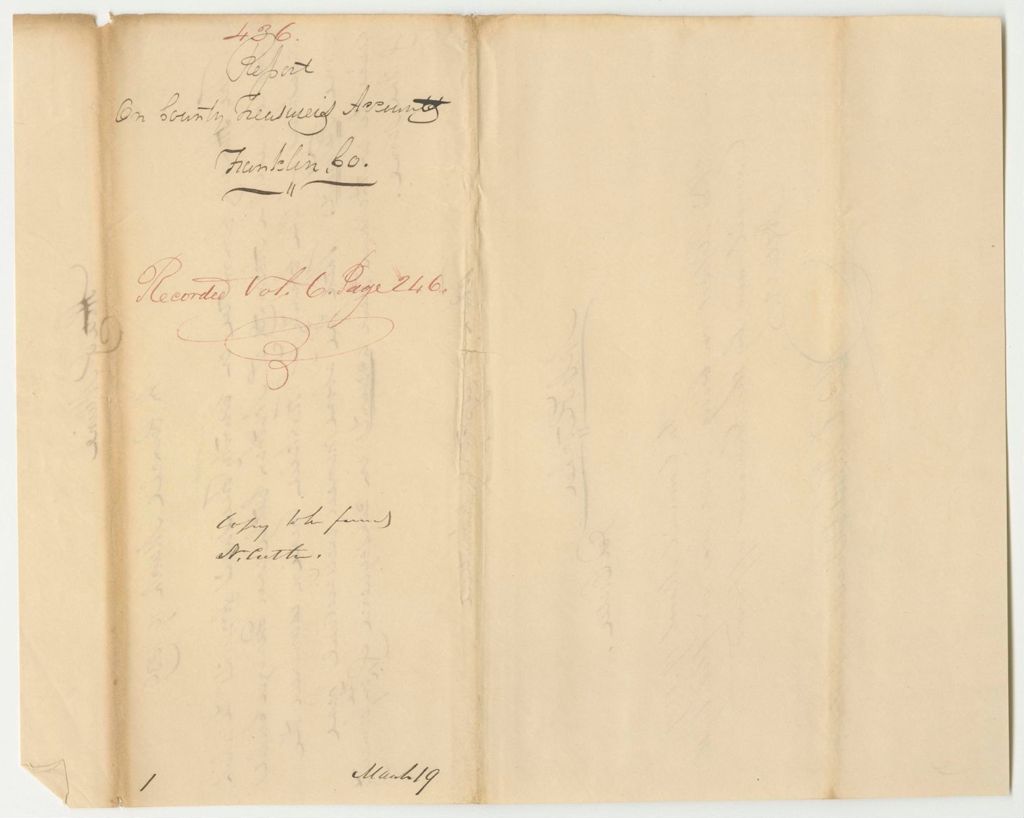 436.
Report
On County Treasurer's Accounts
Franklin Co.
Recorded Vol. 6. Page 246.
Copy to be
N. Cutter.
1
March 19